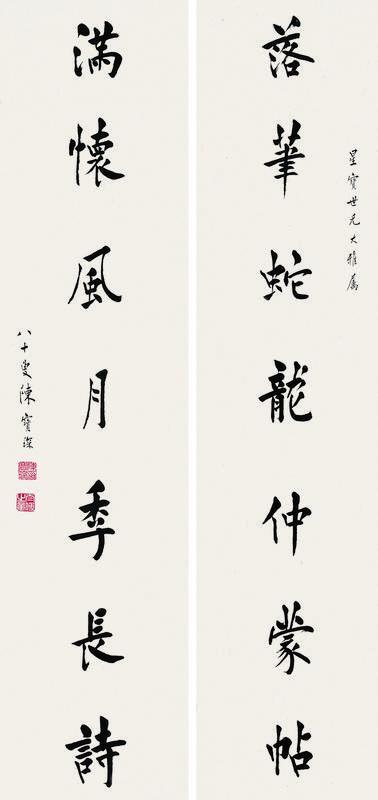 星寶世兄大雅屬
落筆蛇龍仲蒙帖
滿懷風月季長詩
八十叟陳寶琛